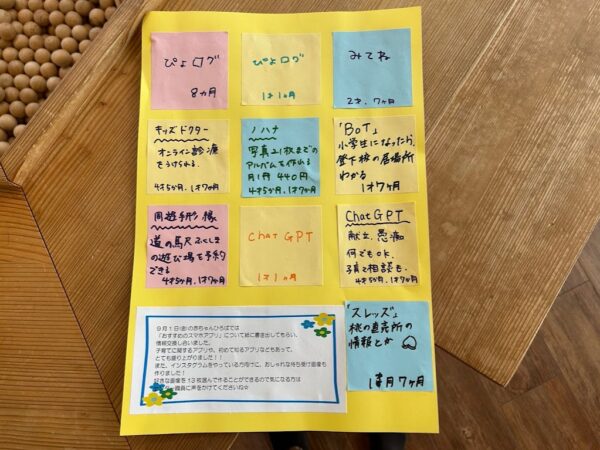 ぴよログ
8ヵ月
ぴよログ
1才1ヶ月
みてね
2才、7ヶ月
キッズドクター
オンライン診療
をうけられる。
4才5か月、1才7か月
ノハナ
写真21枚までの
アルバムを作れる
月1冊 440円
4才5か月、1才7か月
「BoT」
小学生になったら、
登下校の居場所
わかる
1才7ヶ月
周遊手形 縁
道の駅ふくしま
の遊び場を予約
できる
4才5か月、1才7か月
Chat GPT
1才1ヶ月
Chat GPT
献立、愚痴
何でもOK.
子育て相談も。
4才5か月、1才7か月
「スレッズ」
桃の直売所の
情報とか
1才7ヶ月
9月1日(金)の赤ちゃんひろばでは
「おすすめのスマホアプリ」について紙に書き出してもらい、
情報交換し合いました。
子育てに関するアプリや、初めて知るアプリなどもあって、
とても盛り上がりました！！
また、インスタグラムをやっている方向けに、おしゃれな待ち受け画像も
作りました！
好きな画像を13枚選んで作ることができるので気になる方は
職員に声をかけてくださいね☆